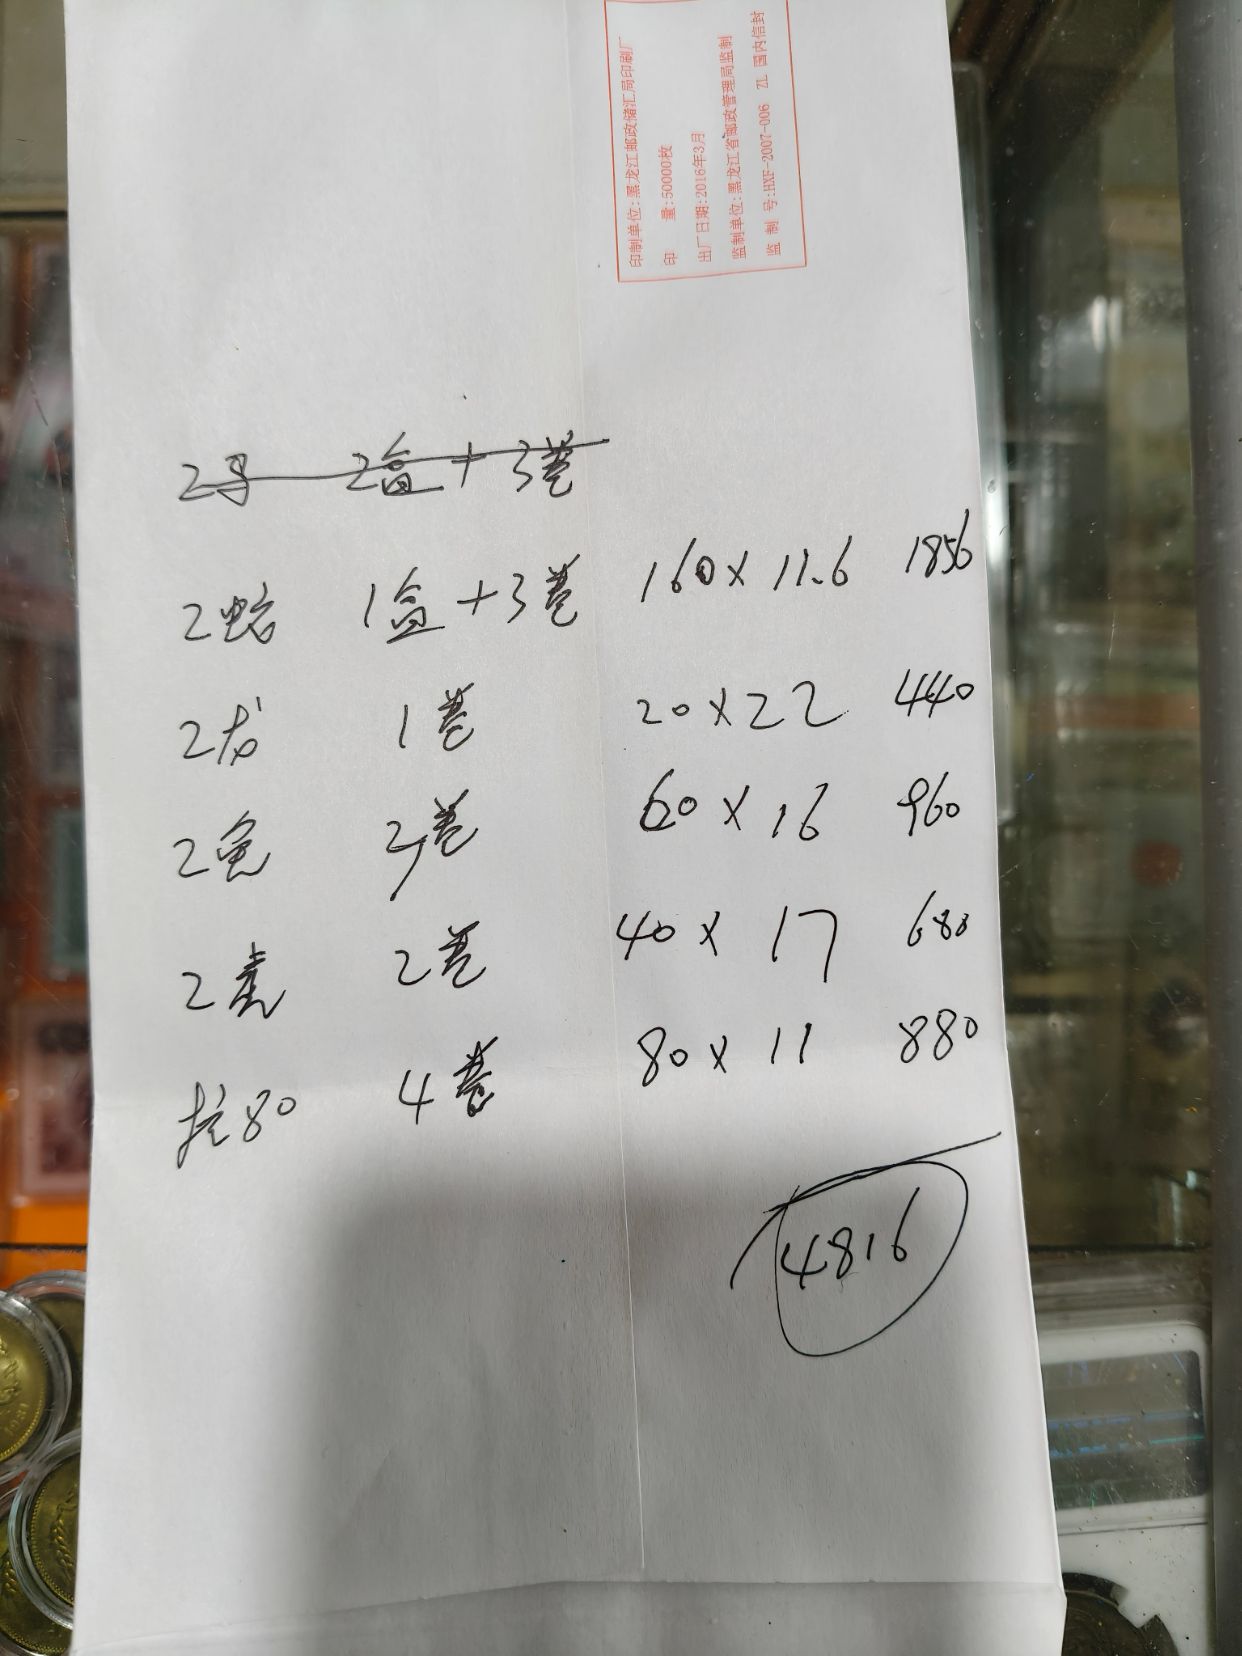 印制单位:黑龙江邮政储汇局印刷厂
印 量:50000枚
出厂日期:2016年3月
监制单位:黑龙江省邮政管理局监制
监 制 号:HXF-2007-006 ZL 国内信封
2马 2盒+3卷
2蛇 1盒+3卷 160×11.6 1856
2龙 1卷 20×22 440
2兔 3卷 60×16 960
2虎 2卷 40×17 680
抗80 4卷 80×11 880
4816
1981